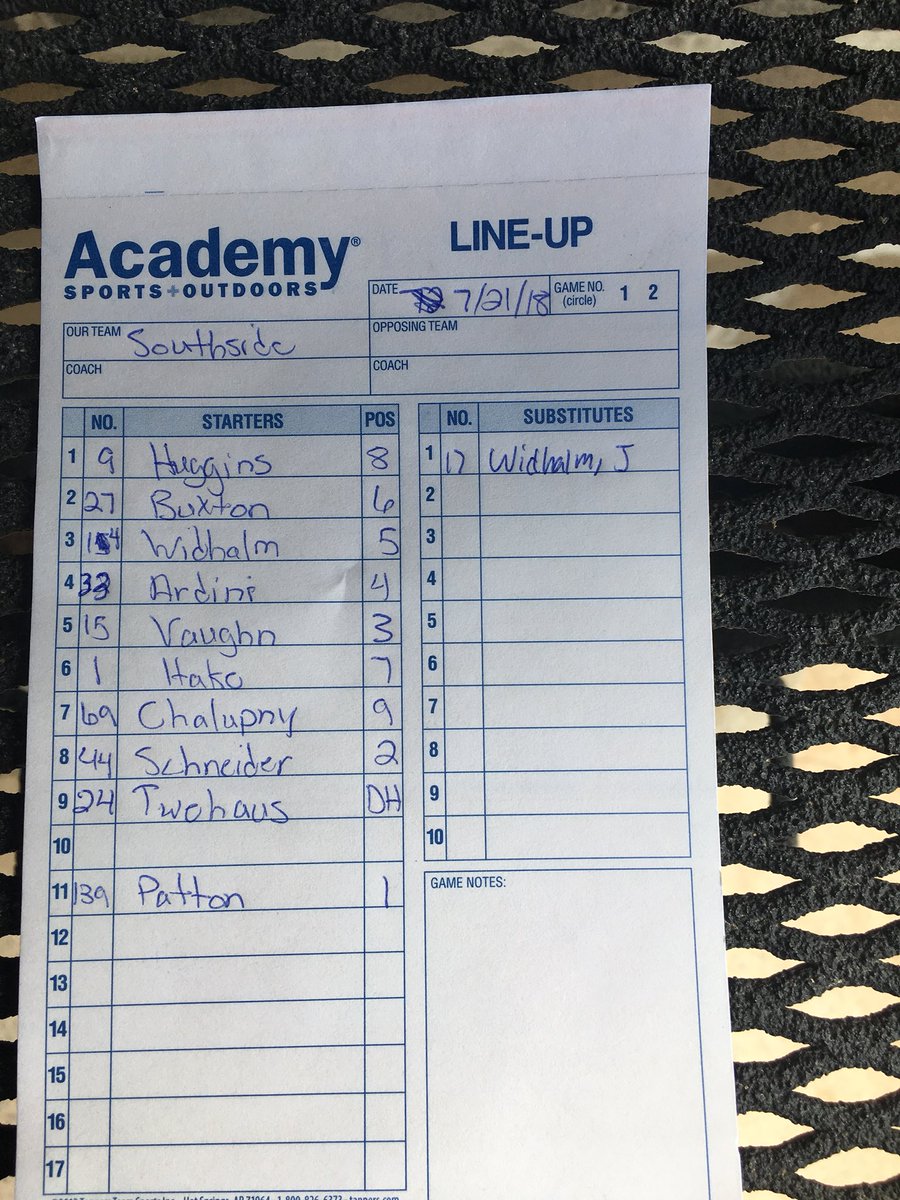 Academy®
SPORTS+OUTDOORS
LINE-UP
DATE 7/21/18 GAME NO. (circle) 1 2
OUR TEAM Southside OPPOSING TEAM
COACH COACH
NO. STARTERS POS
1 9 Huggins 8
2 27 Buxton 6
3 14 Widhalm 5
4 33 Ardini 4
5 15 Vaughn 3
6 1 Hake 7
7 69 Chalupny 9
8 44 Schneider 2
9 24 Twohaus DH
10
11 139 Patton 1
12
13
14
15
16
17
NO. SUBSTITUTES
1 17 Widhalm, J
2
3
4
5
6
7
8
9
10
GAME NOTES: